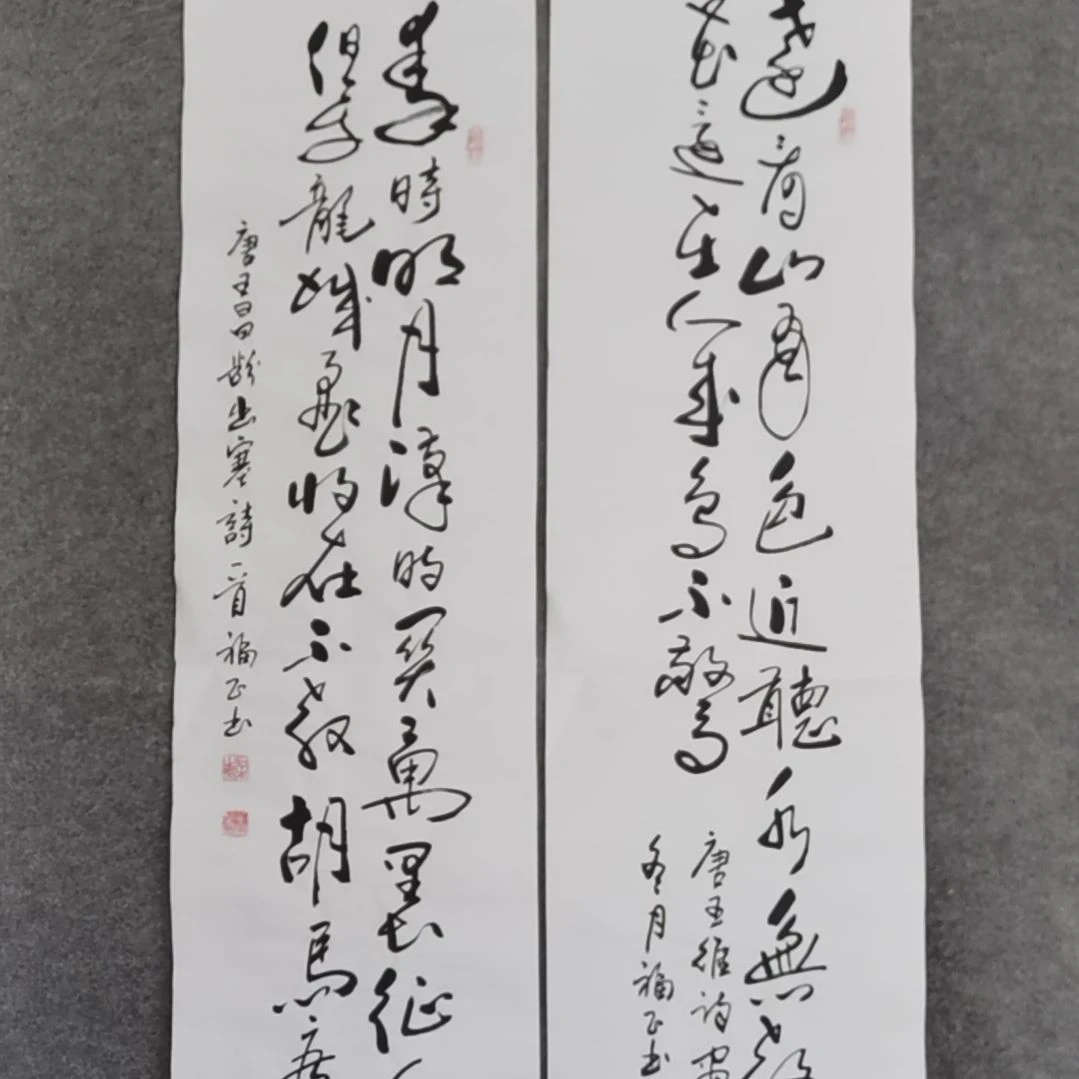 遠看山有色近聽水無聲
花還在人來鳥不驚
唐王維詩畫
冬月福正书
秦時明月漢時關萬里長征
但使龍城飛將在不教胡馬度
唐王昌齡出塞詩一首福正书